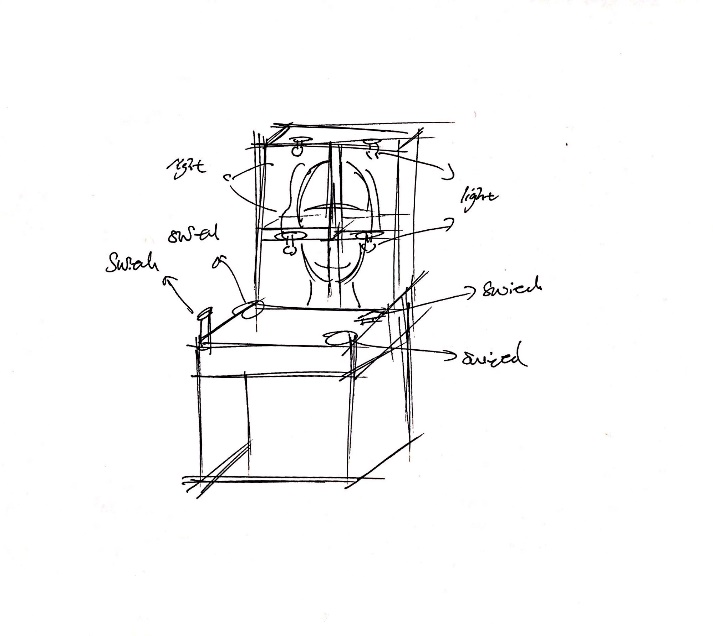 light
light
swich
Swich
swich
swiced